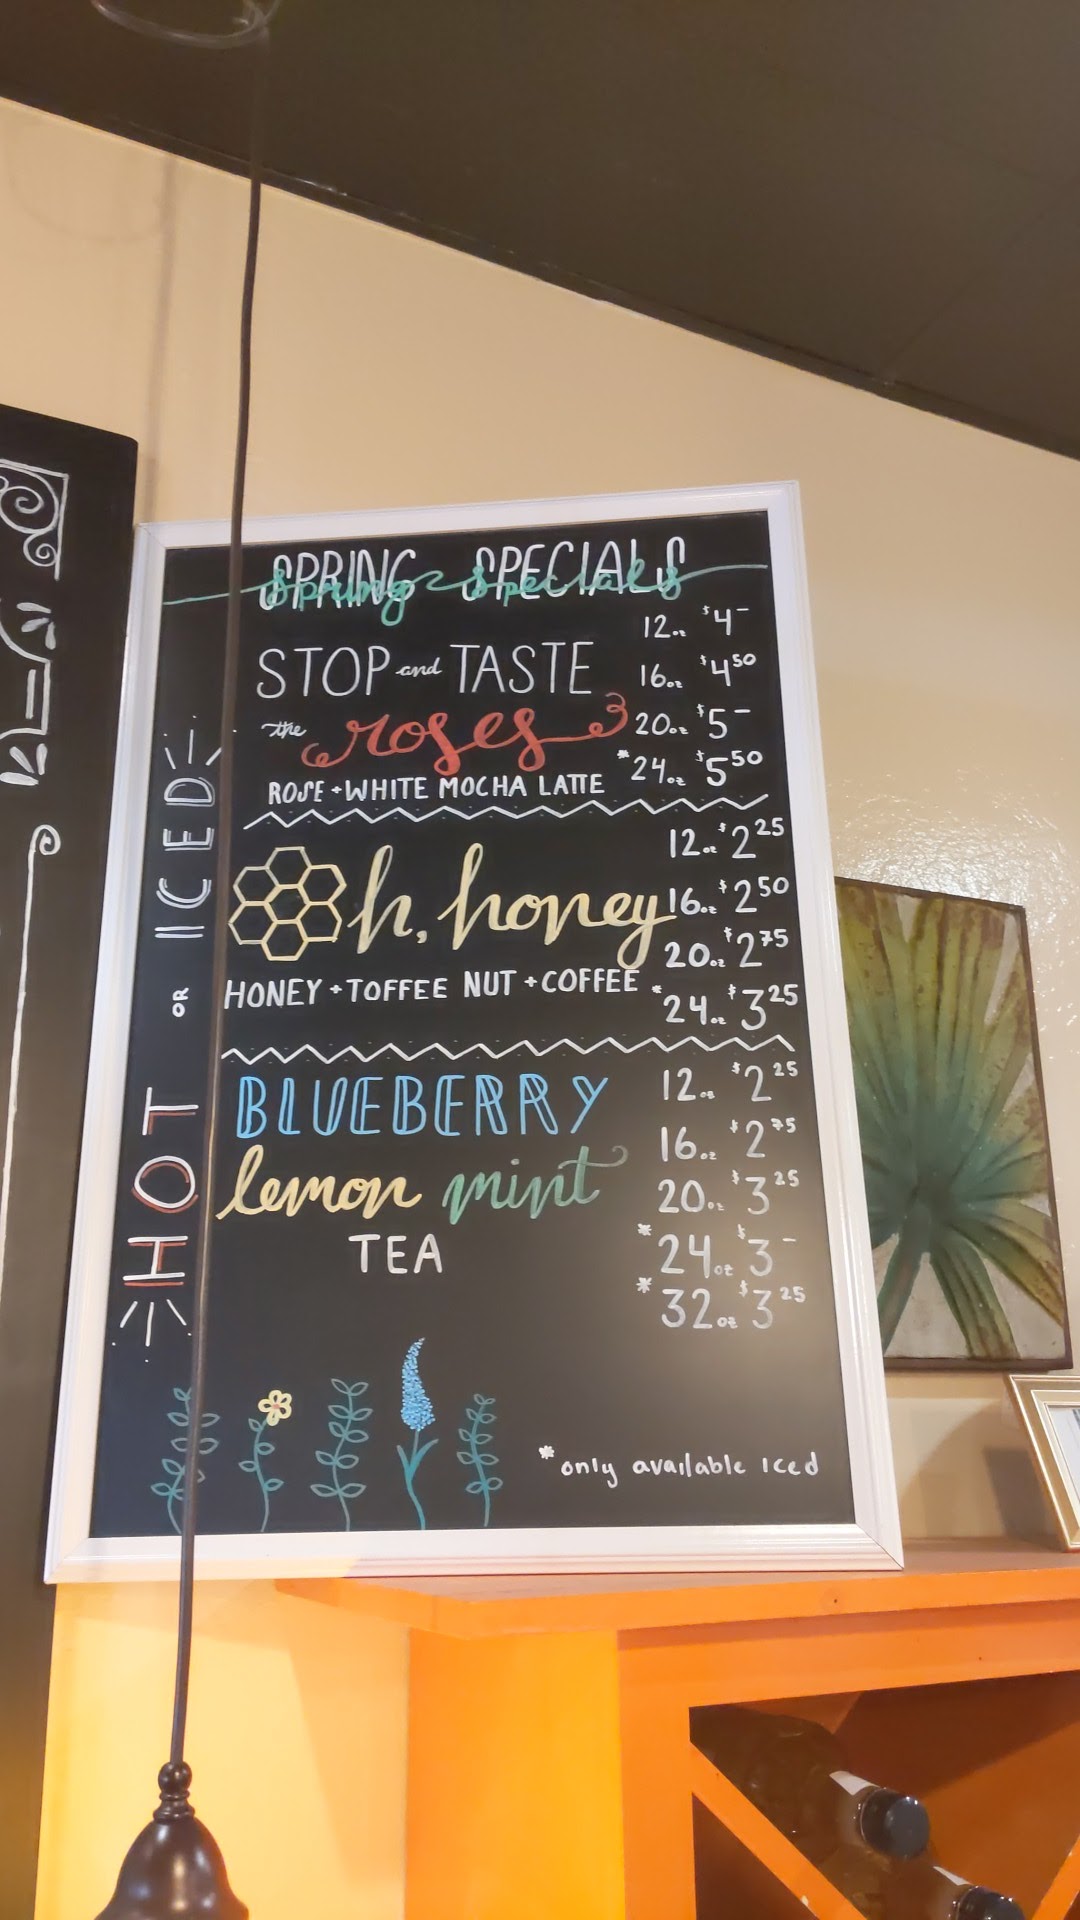 SPRING SPECIALS
Spring Specials
STOP and TASTE
the roses
ROSE + WHITE MOCHA LATTE
12oz $4-
16oz $4 50
20oz $5-
*24oz $5 50
Oh, honey
HONEY + TOFFEE NUT + COFFEE
12oz $2 25
16oz $2 50
20oz $2 75
*24oz $3 25
BLUEBERRY
lemon mint
TEA
12oz $2 25
16oz $2 75
20oz $3 25
*24oz $3-
*32oz $3 25
HOT OR ICED
*only available iced